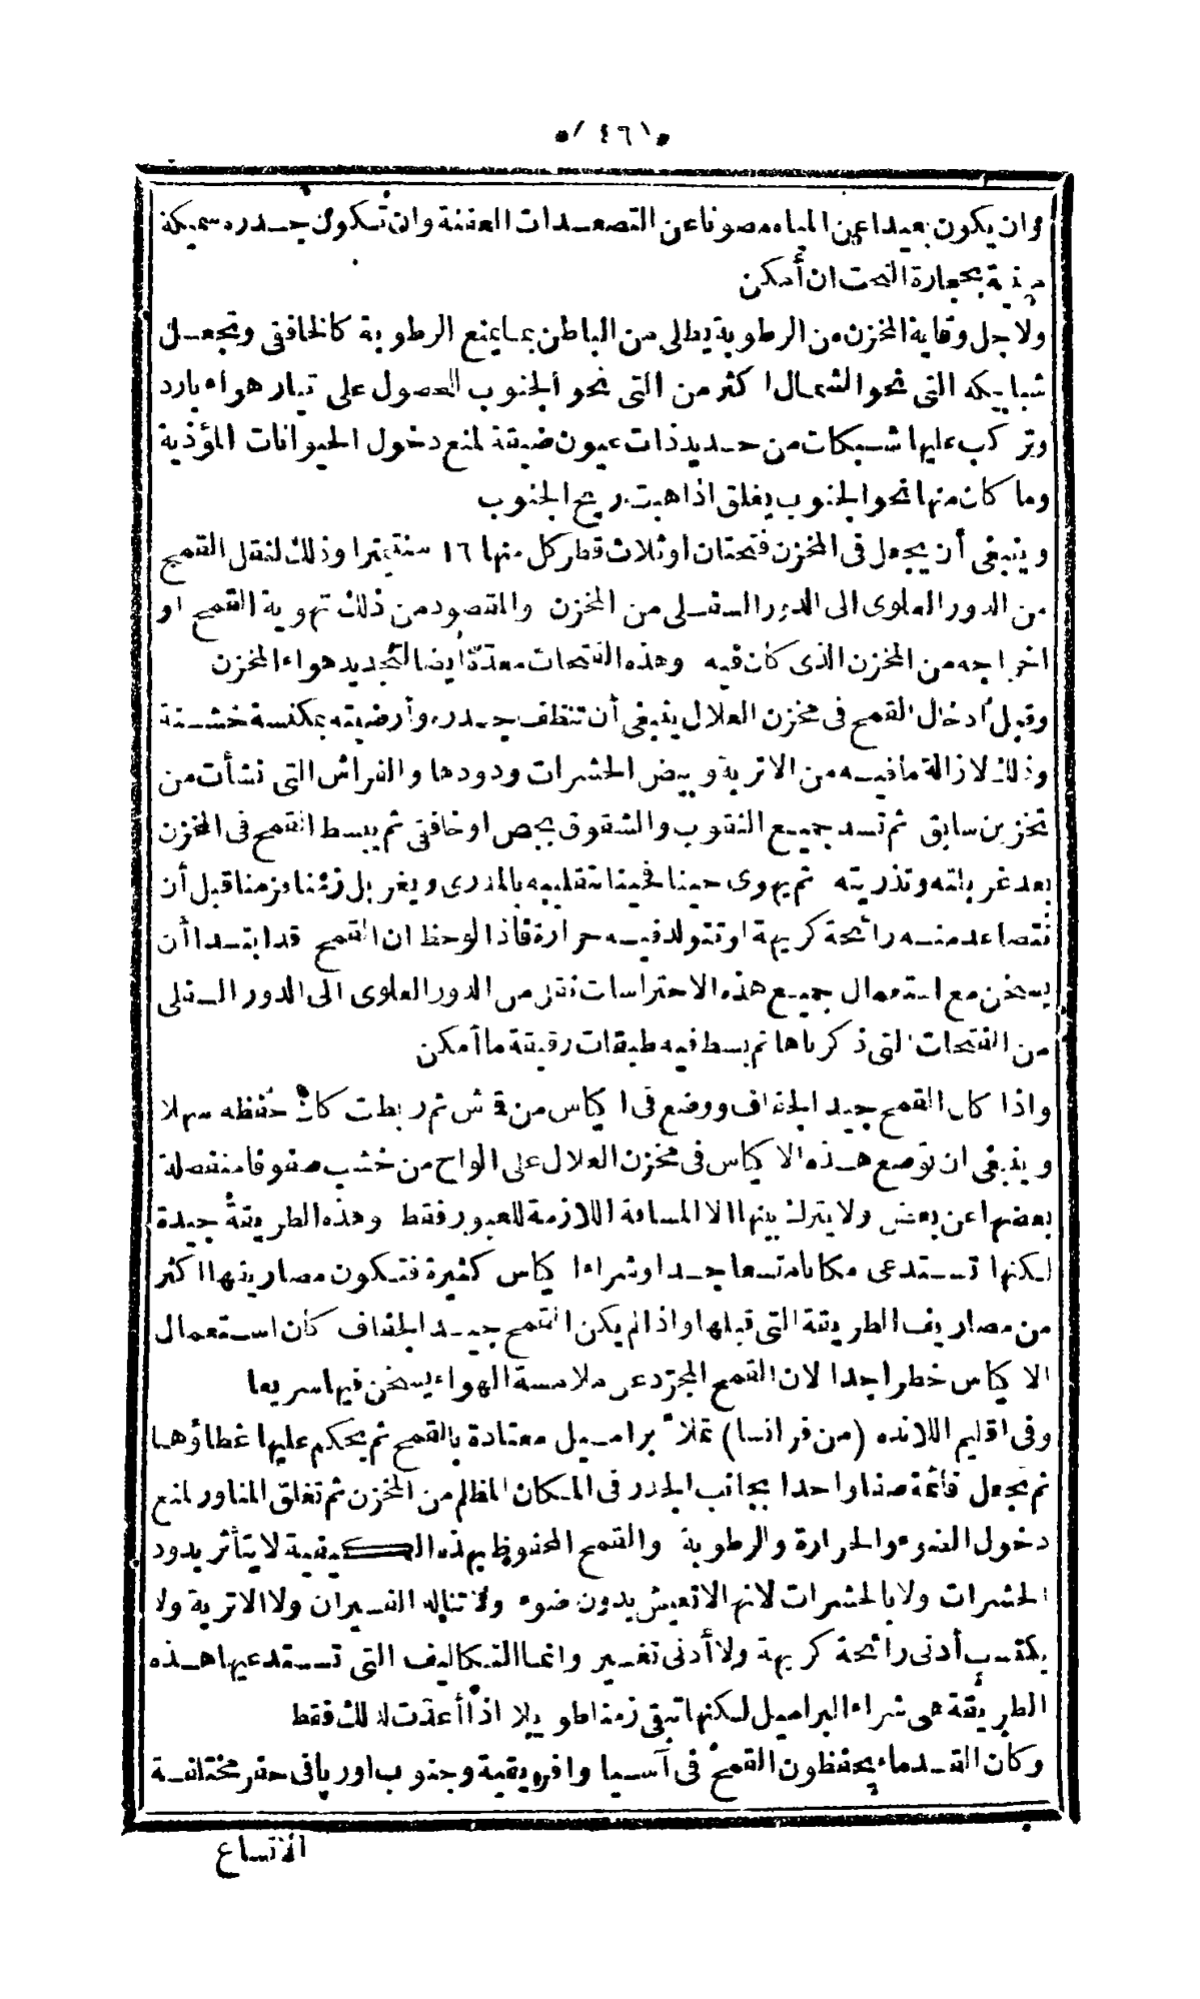 ٤٦١
وان يكون بعيدا عن المياه مصونا عن التصعدات العفنة وان تكون جدره سميكة
مبنية بحجارة النحت ان أمكن
ولاجل وقاية المخزن من الرطوبة يطلى من الباطن بما يمنع الرطوبة كالخافقى وتجعل
شبابيكه التى نحو الشمال اكثر من التى نحو الجنوب للحصول على تيار هواء بارد
وتركب عليها شبكات من حديد ذات عيون ضيقة لمنع دخول الحيوانات المؤذية
وما كان منها نحو الجنوب يغلق اذا هبت ريح الجنوب
وينبغى أن يجعل فى المخزن فتحتان او ثلاث قطر كل منها ١٦ سنتيترا وذلك لنقل القمح
من الدور العلوى الى الدور السفلى من المخزن والمقصود من ذلك تهوية القمح او
اخراجه من المخزن الذى كان فيه وهذه الفتحات معدّة أيضا لتجديد هواء المخزن
وقبل ادخال القمح فى مخزن الغلال ينبغى أن تنظف جدره وأرضيته بمكنسة خشنة
وذلك لازالة ما فيه من الاتربة وبيض الحشرات ودودها والفراش التى نشأت من
تخزين سابق ثم تسد جميع الثقوب والشقوق بجص او خافقى ثم يبسط القمح فى المخزن
بعد غربلته وتذريته ثم يهوى حينا فحينا بتقليبه بالمذرى ويغربل زمنا فزمنا قبل أن
تتصاعد منه رائحة كريهة او تتولد فيه حرارة فاذا لوحظ ان القمح قد ابتدا أن
يسخن مع استعمال جميع هذه الاحتراسات نقل من الدور العلوى الى الدور السفلى
من الفتحات التى ذكرناها ثم بسط فيه طبقات رقيقة ما أمكن
واذا كان القمح جيد الجفاف ووضع فى اكياس من قش ثم ربطت كان حفظه سهلا
وينبغى ان توضع هذه الاكياس فى مخزن الغلال على الواح من خشب صفوفا منفصلة
بعضها عن بعض ولا يترك بينها الا المسافة اللازمة للعبور فقط وهذه الطريقة جيدة
لكنها تستدعى مكانا متسعا جدا وشراء اكياس كثيرة فتكون مصاريفها اكثر
من مصاريف الطريقة التى قبلها واذا لم يكن القمح جيد الجفاف كان استعمال
الاكياس خطرا جدا لان القمح المجرّد عن ملامسة الهواء يسخن فيها سريعا
وفى اقليم اللانده (من فرانسا) تملأ براميل معتادة بالقمح ثم يحكم عليها غطاؤها
ثم تجعل قائمة صفا واحدا بجانب الجدر فى المكان المظلم من المخزن ثم تغلق المناور لمنع
دخول الضوء والحرارة والرطوبة والقمح المحفوظ بهذه الكيفية لا يتأثر بدود
الحشرات ولا بالحشرات لانها لا تعيش بدون ضوء ولا تناله الفيران ولا الاتربة ولا
يكتسب أدنى رائحة كريهة ولا أدنى تغيير وانما التكاليف التى تستدعيها هذه
الطريقة هى شراء البراميل لكنها تبقى زمنا طويلا اذا أعدّت لذلك فقط
وكان القدماء يحفظون القمح فى آسيا وافريقية وجنوب اوربا فى حفر مختلفة
الاتساع